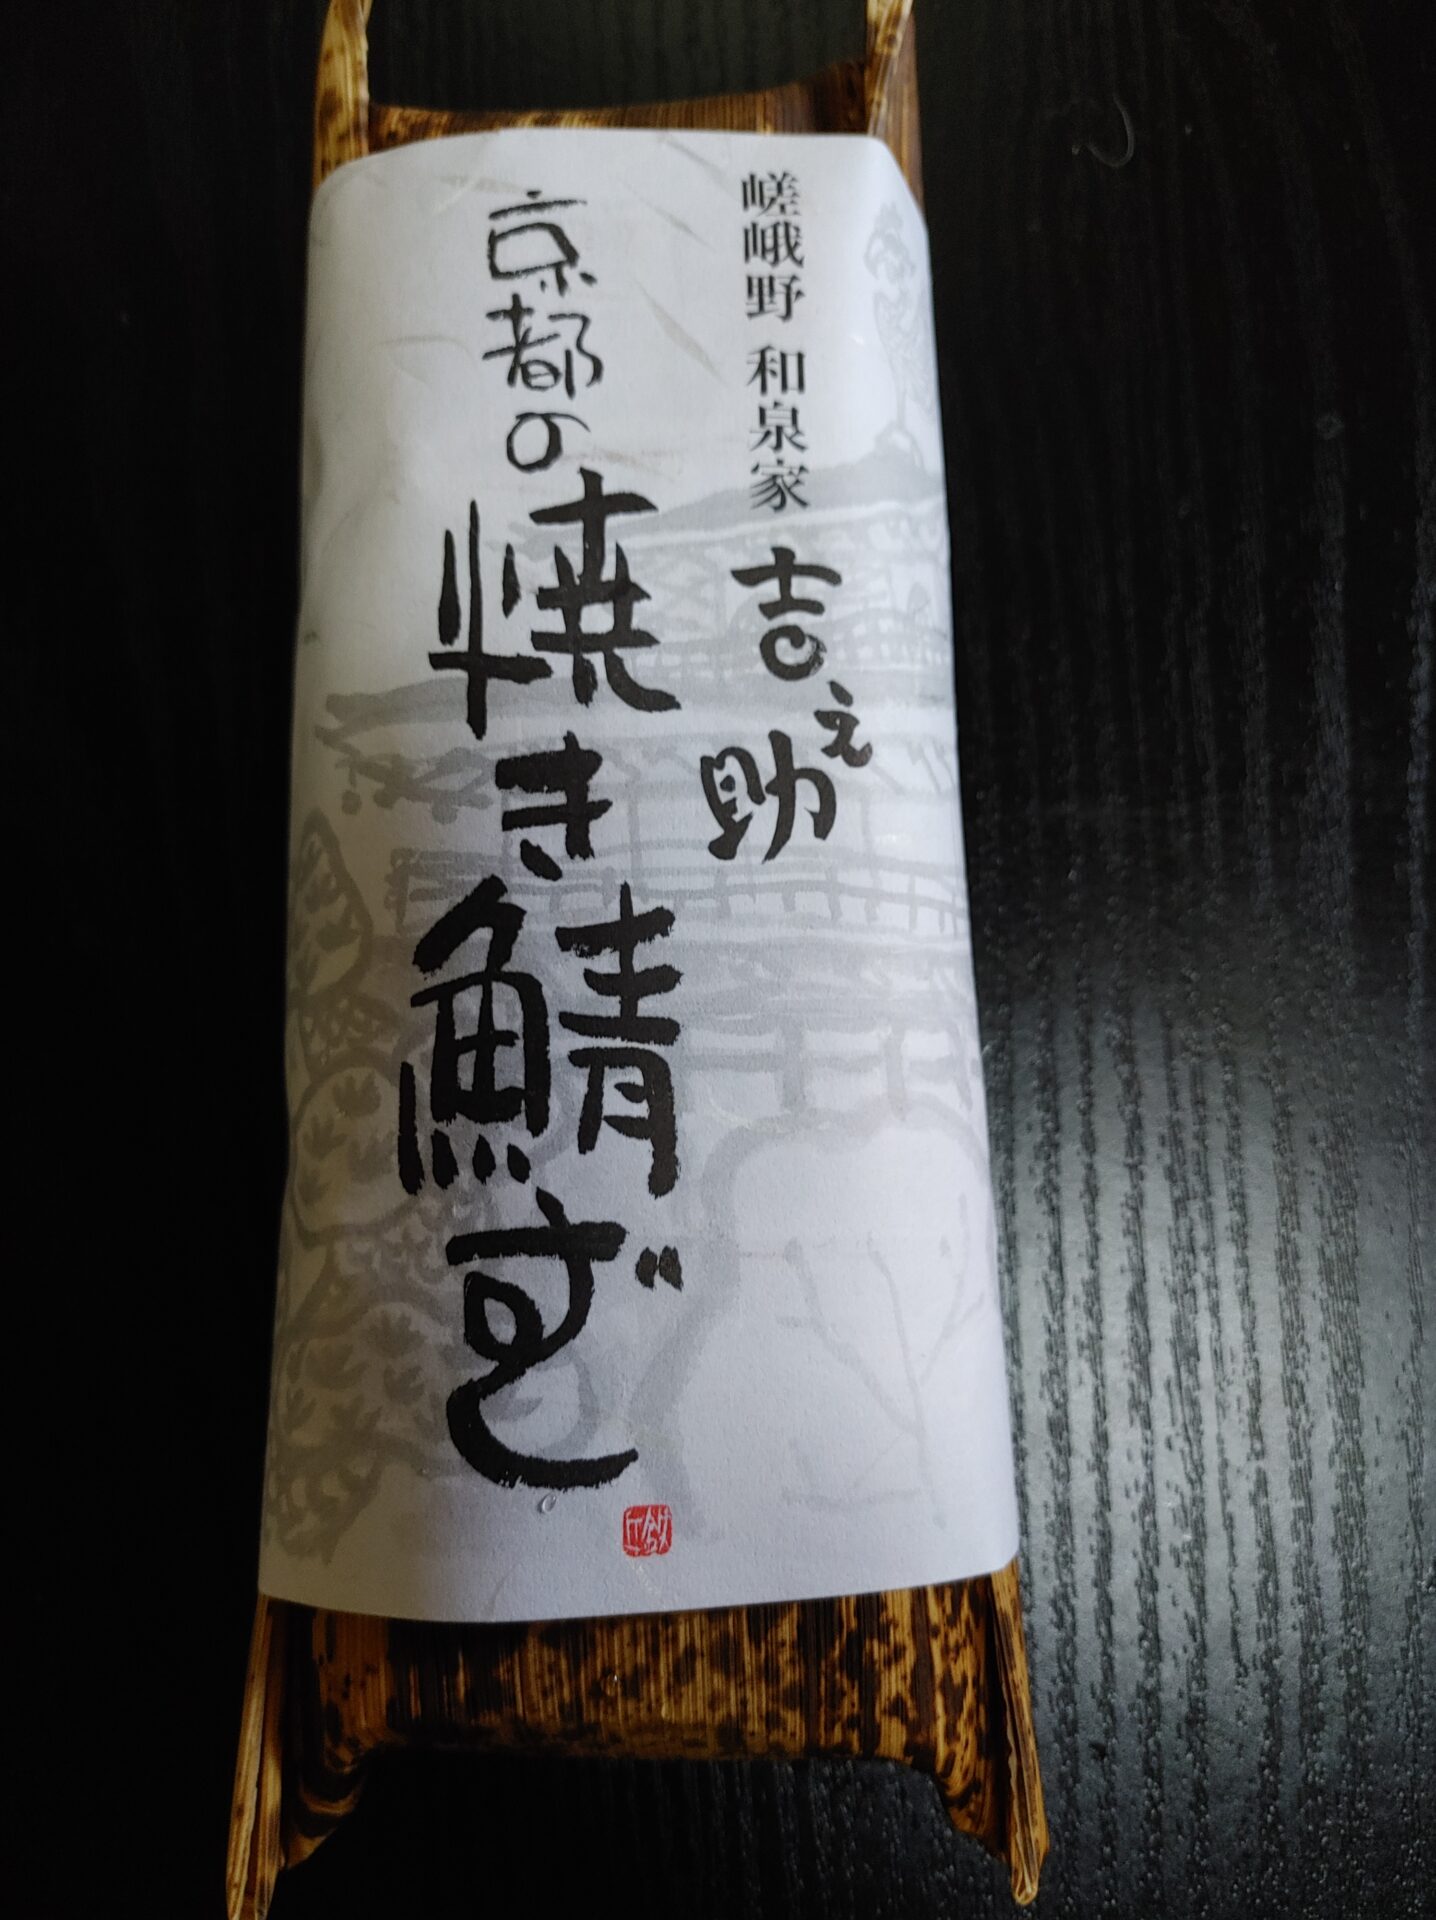 嵯峨野 和泉家 吉之助
京都の焼き鯖ずし